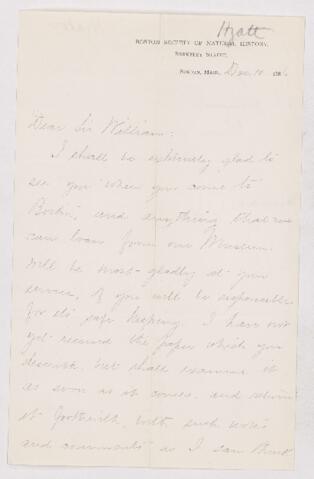 Hyatt
BOSTON SOCIETY OF NATURAL HISTORY,
BERKELEY STREET,
BOSTON, MASS., Dec. 10 188
Dear Sir William:
I shall be extremely glad to
see you when you come to
Boston, and anything that we
can loan from our Museum
will be most gladly at your
service, if you will be responsible
for its safe keeping. I have not
yet received the paper which you
describe, but shall examine it
as soon as it comes, and return
it forthwith, with such notes
and comments as I can